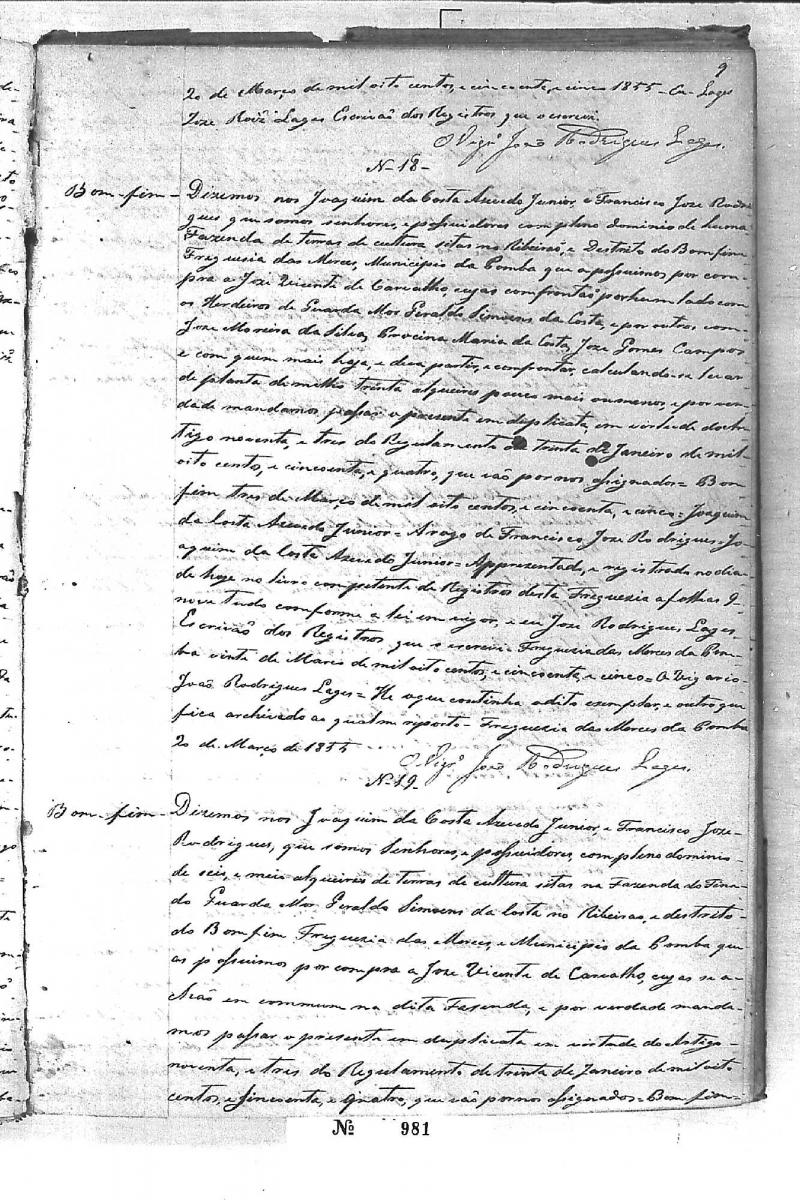 9
20 de Março de mil oito centos, e cincoenta, e cinco 1855 - Eu Lages
Joze Roiz Lages Escrivaõ dos Registros que o escrevi.
O Vigº Joaõ Rodrigues Lages.
N - 18 -
Bom-fim - Dizemos nos Joaquim da Costa Azevedo Junior, e Francisco Joze Rodri
gues que somos senhores, e possuidores com pleno dominio de huma
Fazenda de terras de cultura sitas no Ribeiraõ, e Destrito do Bom fim
Freguesia das Merces, Municipio da Pomba que a possuimos por com-
pra a Joze Vicente de Carvalho, cujas confrontaõ por hum lado com
os Herdeiros de Guarda Mor Geraldo Simoens da Costa, e por outros com
Joze Moreira da Silva, Maria da Costa, Joze Gomes Campos
e com quem mais haja, e deva partir, e confrontar, calculando-se levar
de planta de milho trinta alqueires pouco mais ou menos, e por ver-
dade mandamos passar o presente em duplicata, em virtude do Ar-
tigo noventa, e tres do Regulamento de trinta de Janeiro de mil
oito centos, e cincoenta, e quatro, que vaõ por nos assignados = Bom
fim tres de Março de mil oito centos, e cincoenta, e cinco = Joaquim
da Costa Azevedo Junior = Arogo de Francisco Joze Rodrigues = Jo-
aquim da Costa Azevedo Junior = Appresentado, e registrado no dia
de hoje no livro competente de Registros desta Freguezia a folhas 9-
nove tudo conforme a lei em vigor, e eu Joze Rodrigues Lages
Escrivaõ dos Registros que o escrevi = Freguezia das Merces da Pom-
ba vinte de Marco de mil oito centos, e cincoenta, e cinco = O Vigario
Joaõ Rodrigues Lages = He o que continha o dito exemplar, e outro que
fica archivado ao qual me reporto - Freguezia das Merces da Pomba
20 de Março de 1855
O Vigº Joaõ Rodrigues Lages.
N - 19 -
Bom-fim - Dizemos nos Joaquim da Costa Azevedo Junior, e Francisco Joze
Rodrigues, que somos Senhores, e possuidores, com pleno dominio
de seis, e meio alqueires de terras de cultura sitas na Fazenda do Fina-
do Guarda Mor Geraldo Simoens da Costa no Ribeiraõ, e destrito
do Bom fim Freguezia das Merces, e Municipio da Pomba que
as possuimos por compra a Joze Vicente de Carvalho, cujas se a-
chaõ em commum na dita Fasenda, e por verdade manda-
mos passar o presente em duplicata em virtude do Artigo
noventa, e tres do Regulamento de trinta de Janeiro de mil oito
centos, e Sincoenta, e quatro, que vaõ por nos assignados = Bom fim =
Nº 981